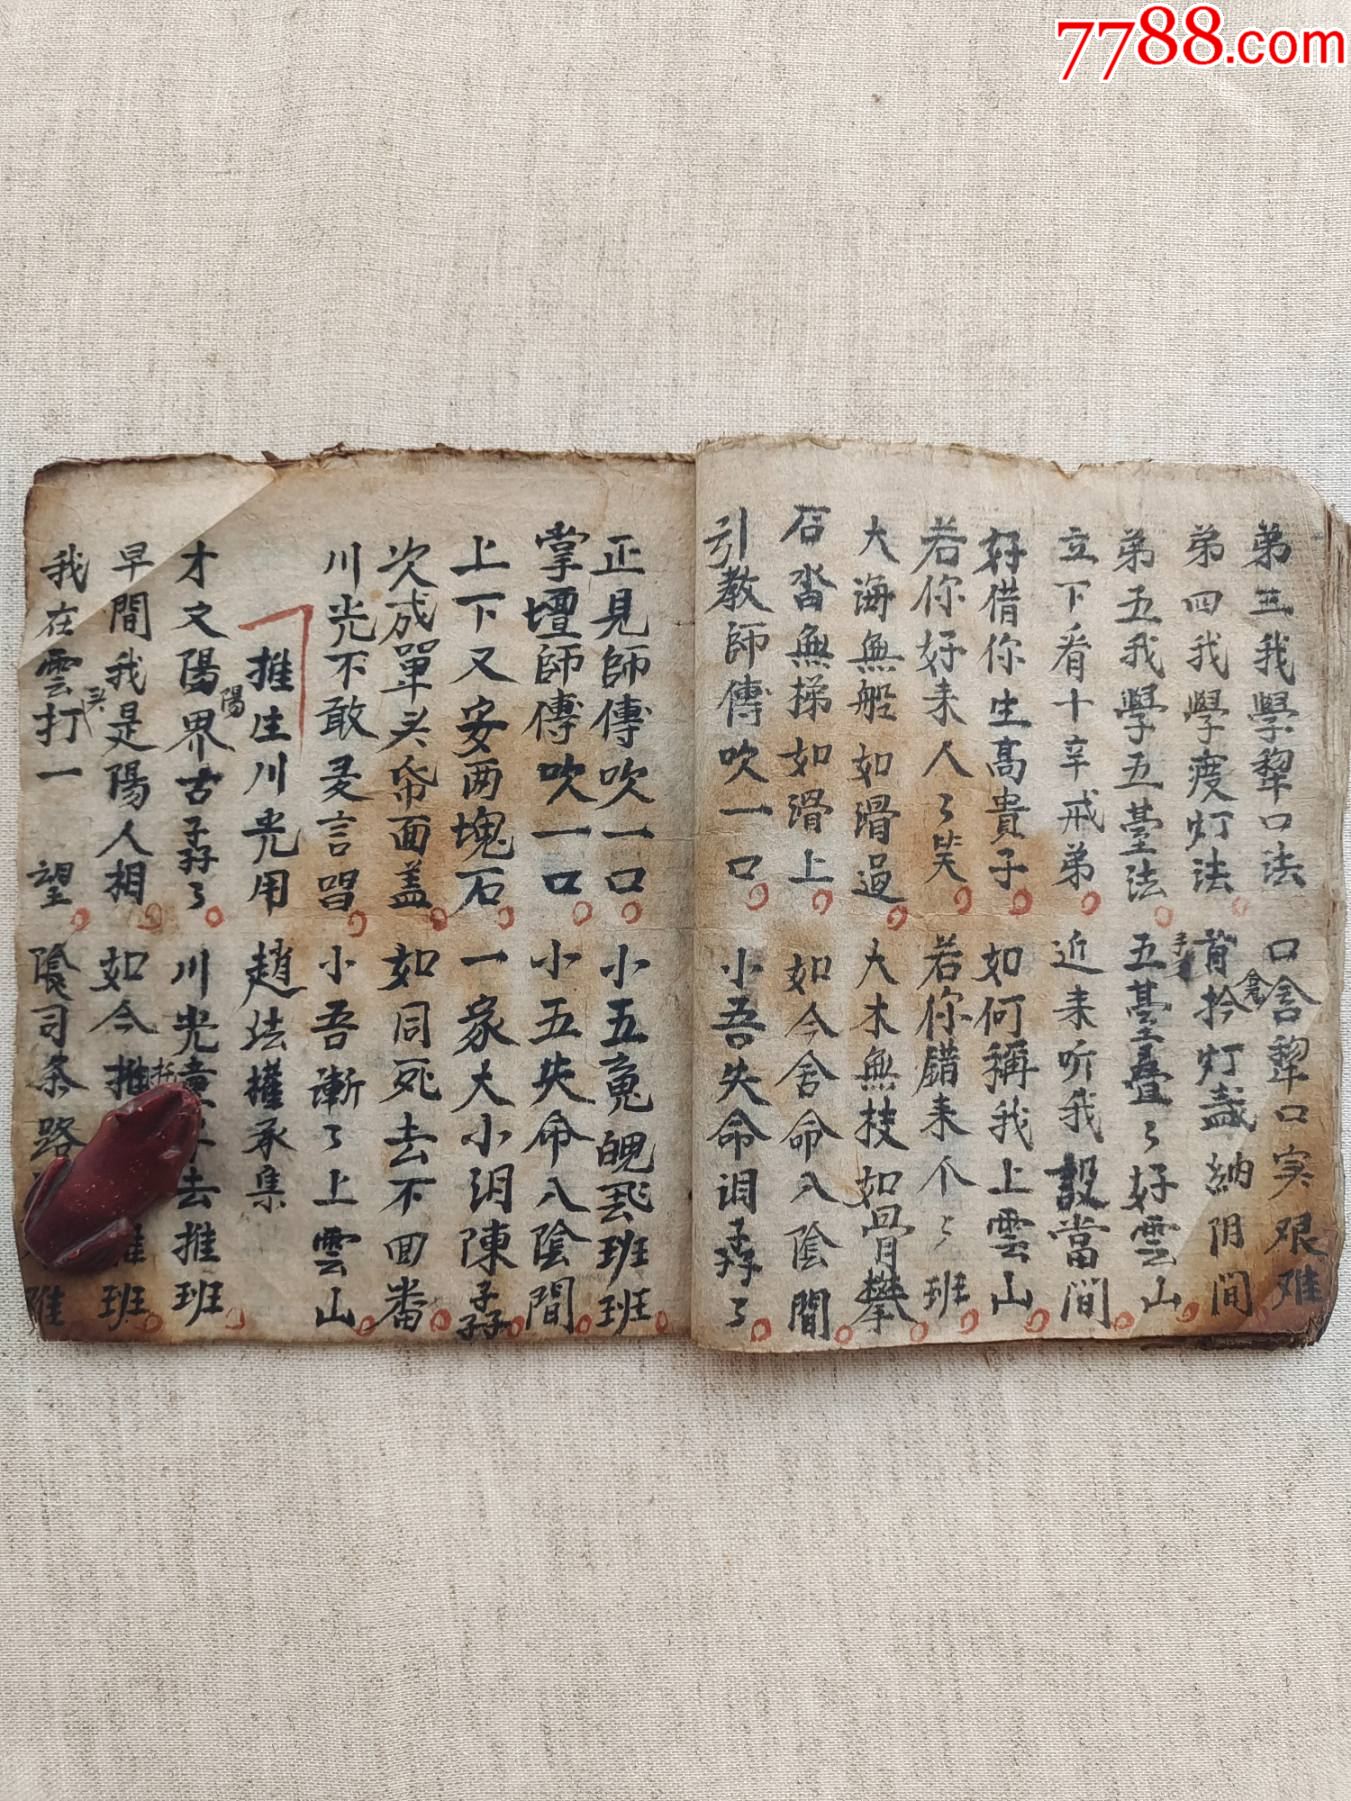 7788.com
弟三我學犂口法 口含犂口实艰难
弟四我學度灯法 背扲灯盏納阴間
弟五我學五䑓法 五䑓疊々好雲山
立下看十辛戒弟 近来听我設當間
好借你生高貴子 如何稱我上雲山
若你好来人々笑 若你錯来个々班
大海無船如滑過 大木無枝如骨攀
石畓無梯如滑上 如今舍命入陰間
引教師傳吹一口 小吾失命泪孖々
正見師傳吹一口 小五䰟魄飛班班
掌壇師傳吹一口 小五失命入陰間
上下又安两塊石 一家大小泪陳孖
次成單头帋面盖 如同死去不回番
川光不敢多言唱 小吾漸々上雲山
推生川光用 趙法權承集
才文陽界古孖々 川光 去推班
早間我是陽人相 如今推 班
我在雲打一望 陰司条路 难